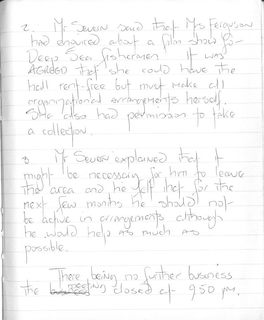 2. Mr Severn said that Mrs Ferguson
had enquired about a film show for
Deep Sea fishermen. It was
AGREED that she could have the
hall rent-free but must make all
organisational arrangements herself.
She also had permission to take
a collection.
3. Mr Severn explained that it
might be necessary for him to leave
the area and he felt that for the
next few months he should not
be active in arrangements although
he would help as much as
possible.
There being no further business
the meeting closed at 9.50 pm.